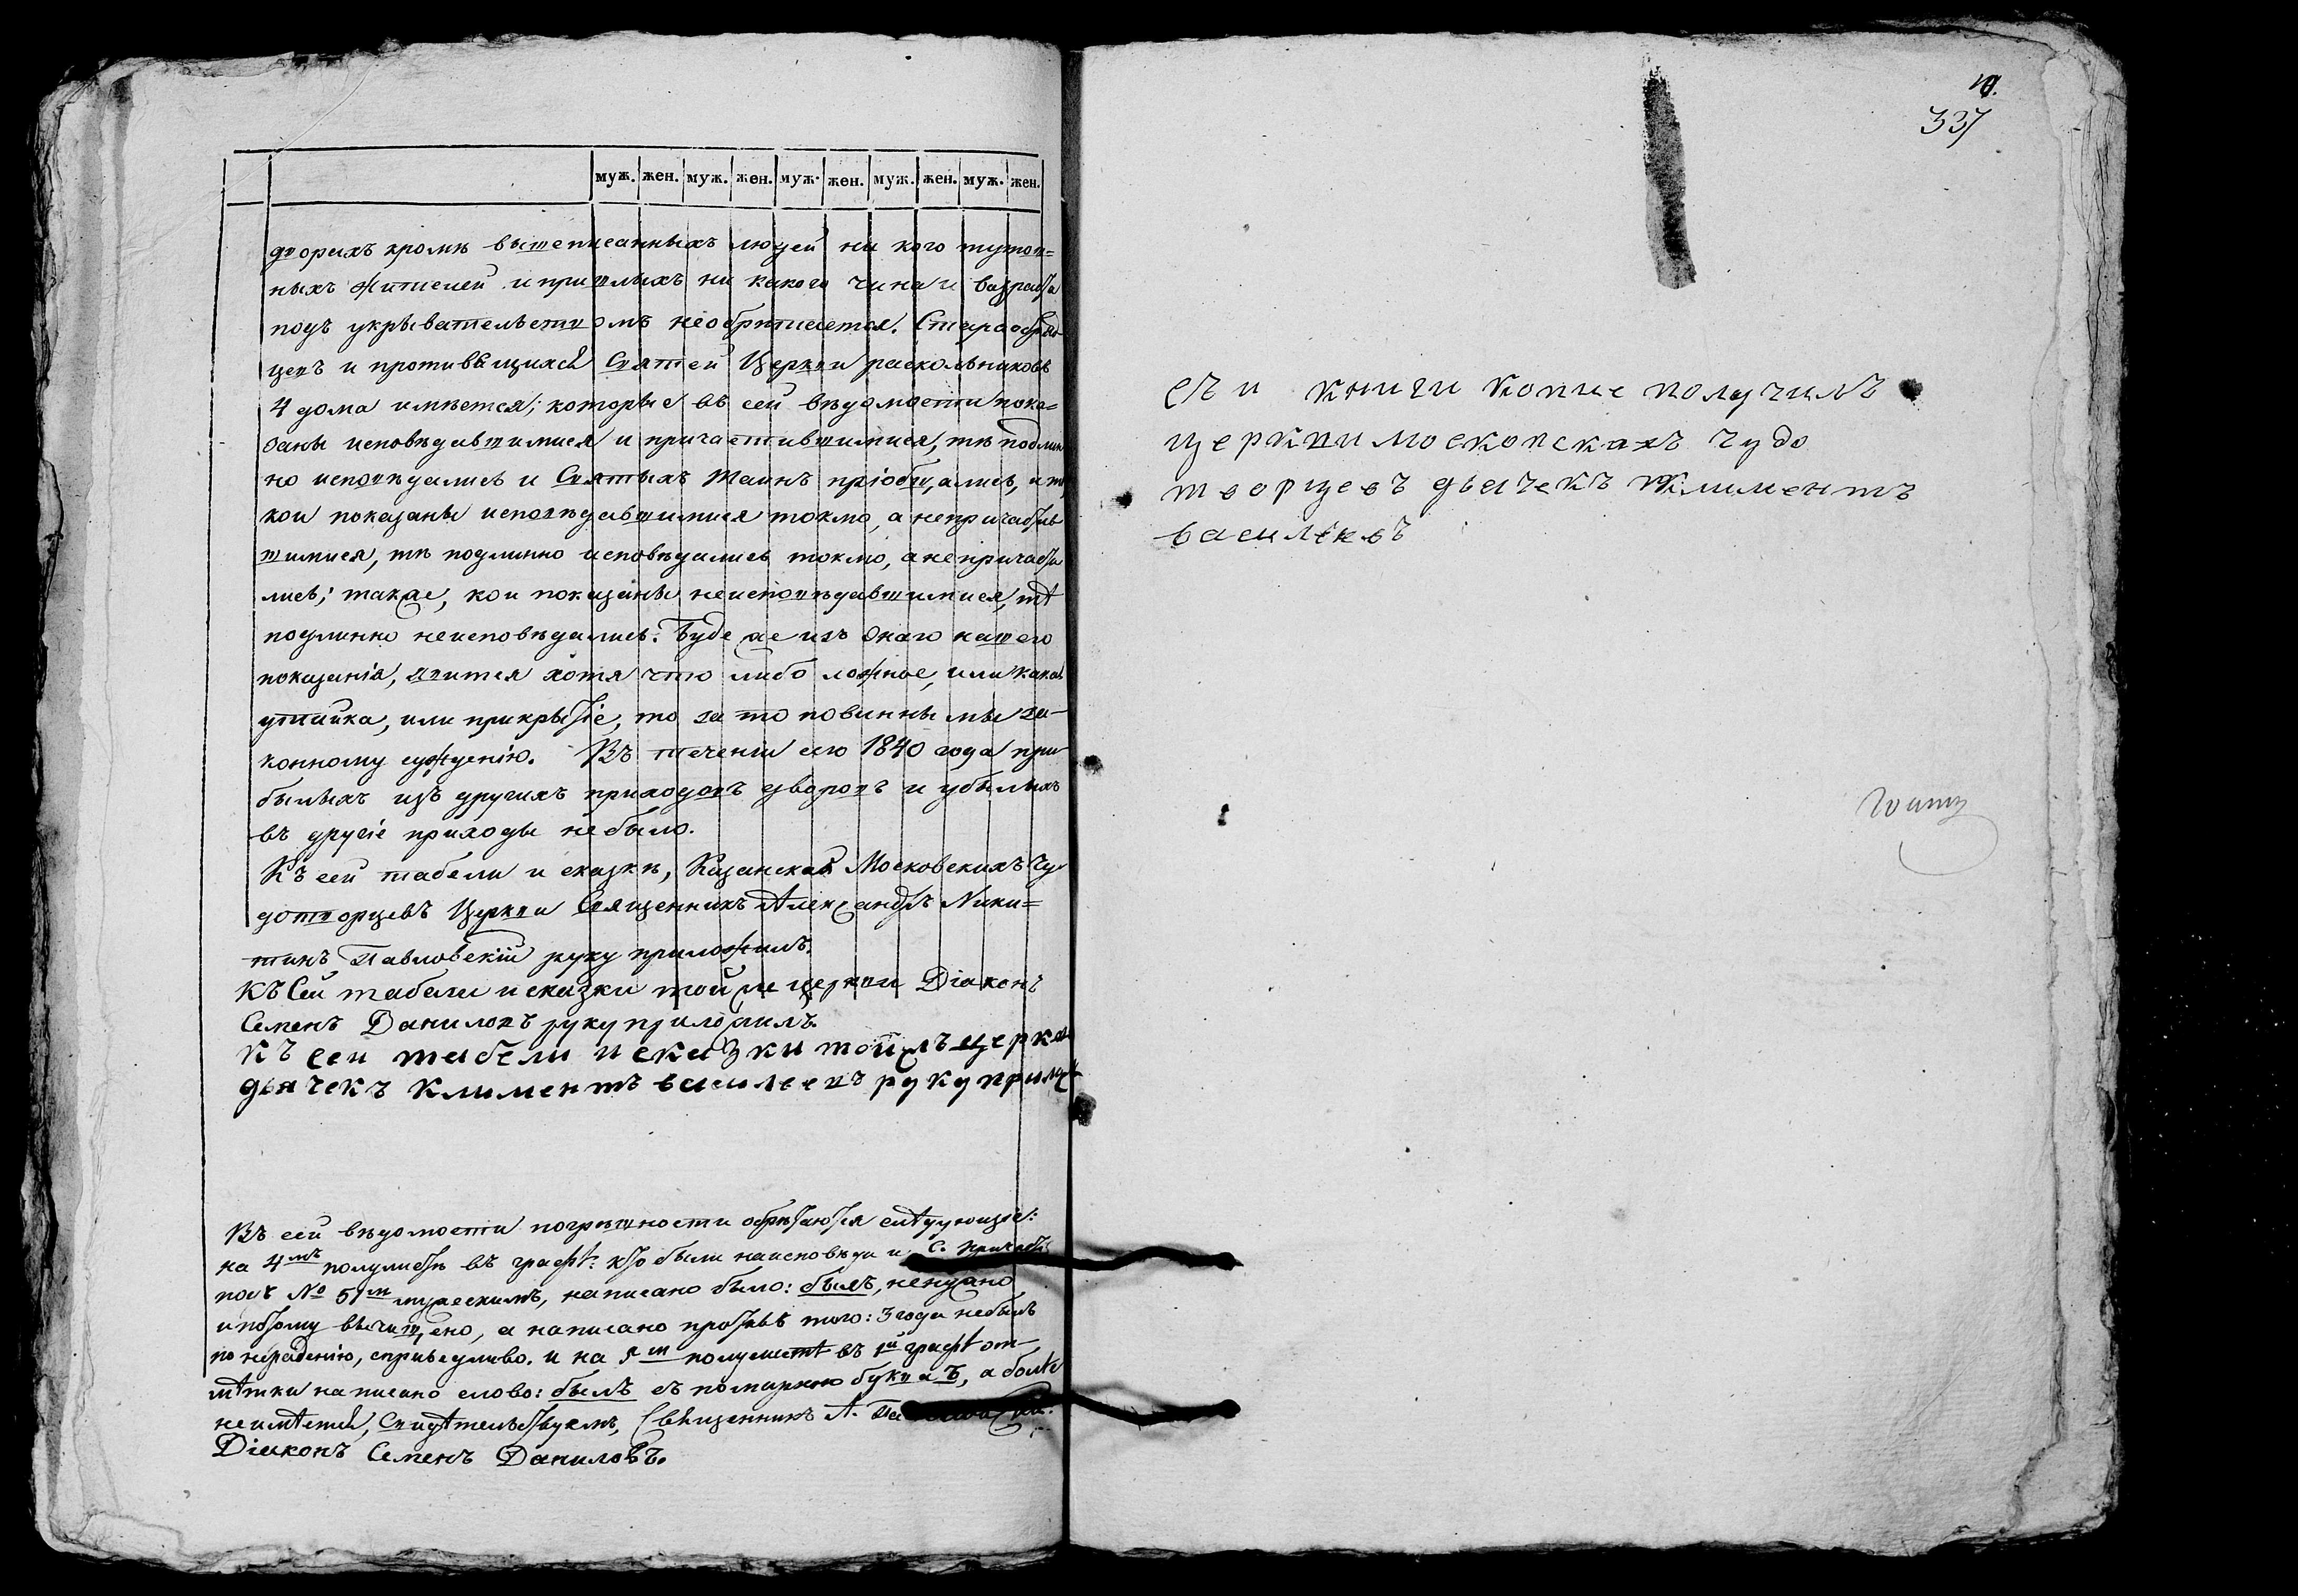 муж. жен. муж. жен. муж. жен. муж. жен. муж. жен.
дворахъ кромѣ вышеписанныхъ людей ни кого тутош=
ныхъ жителей и пришлыхъ ни какого чина и возраста
подъ укрывательствомъ необрѣтается. Старообряд-
цевъ и противящихся Святей Церкви раскольниковъ
4 дома имѣется; которые въ сей вѣдомости пока=
заны исповѣдавшимися и причастившимися, тѣ подлин
но исповѣдались и Святыхъ Таинъ пріобщались, а
кои показаны исповѣдавшимися токмо, а непричастив
шимися, тѣ подлинно исповѣдались токмо, а непричасти
лись; также, кои показаны неисповѣдавшимися, тѣ
подлинно неисповѣдались. Буде же изъ онаго нашего
показанія, явится хотя что либо ложное, или какая
утайка, или прикрытіе, то за то повинны мы за-
конному сужденію. Въ теченіи сего 1840 года при
былыхъ изъ другихъ приходовъ дворовъ и убылыхъ
въ другіе приходы небыло.
Къ сей табели и сказкѣ, Казанской Московскихъ Чу
дотворцевъ Церкви Священникъ Александръ Ники=
тинъ Павловскій руку приложилъ.
Къ Сей табели и сказки той же церкви Діаконъ
Семенъ Даниловъ руку приложилъ.
Къ сей табели и сказки той жъ церкви
дьячекъ Климентъ васильевъ руку прилож
Въ сей вѣдомости погрѣшности обрѣтаются слѣдующіе:
на 4мъ полулистѣ въ графѣ: кто были наисповѣди и С. Причастія
подъ № 51м мужескимъ, написано было: былъ, ненужно
и потому вычищено, а написано противъ того: 3 года небылъ
по нерадѣнію, справедливо. и на 5м полулистѣ въ 1й графѣ от
мѣтки написано слово: былъ съ помаркою буква Ъ, а болѣе
неимѣется, Свидѣтельствуемъ, Священникъ А. Павловскій.
Діаконъ Семенъ Даниловъ.
337
съ и книги копие получилъ
церкви московскахъ чудо
творцевъ дьячекъ Климентъ
васильевъ